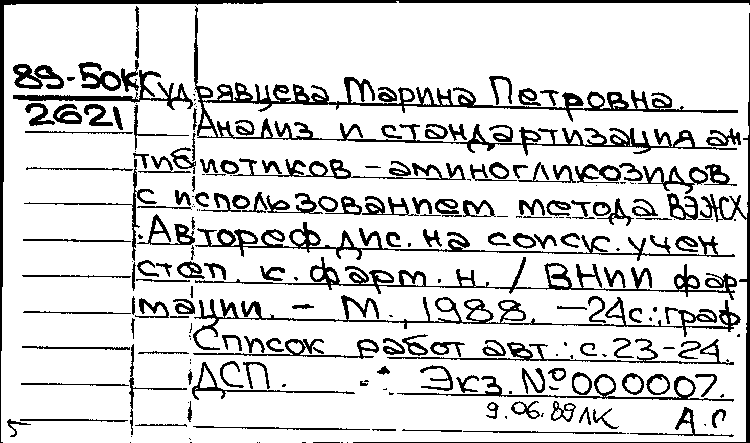 89-50к Кудрявцева, Марина Петровна.
2621 Анализ и стандартизация ан-
тибиотиков - аминогликозидов
с использованием метода ВЭЖХ
: Автореф. дис. на соиск. учен
степ. к. фарм. н. / ВНИИ фар-
мации. - М., 1988. - 24с.: граф.
Список работ авт.: с. 23-24.
ДСП. Экз. № 000007.
9.06.89 ЛК А.С